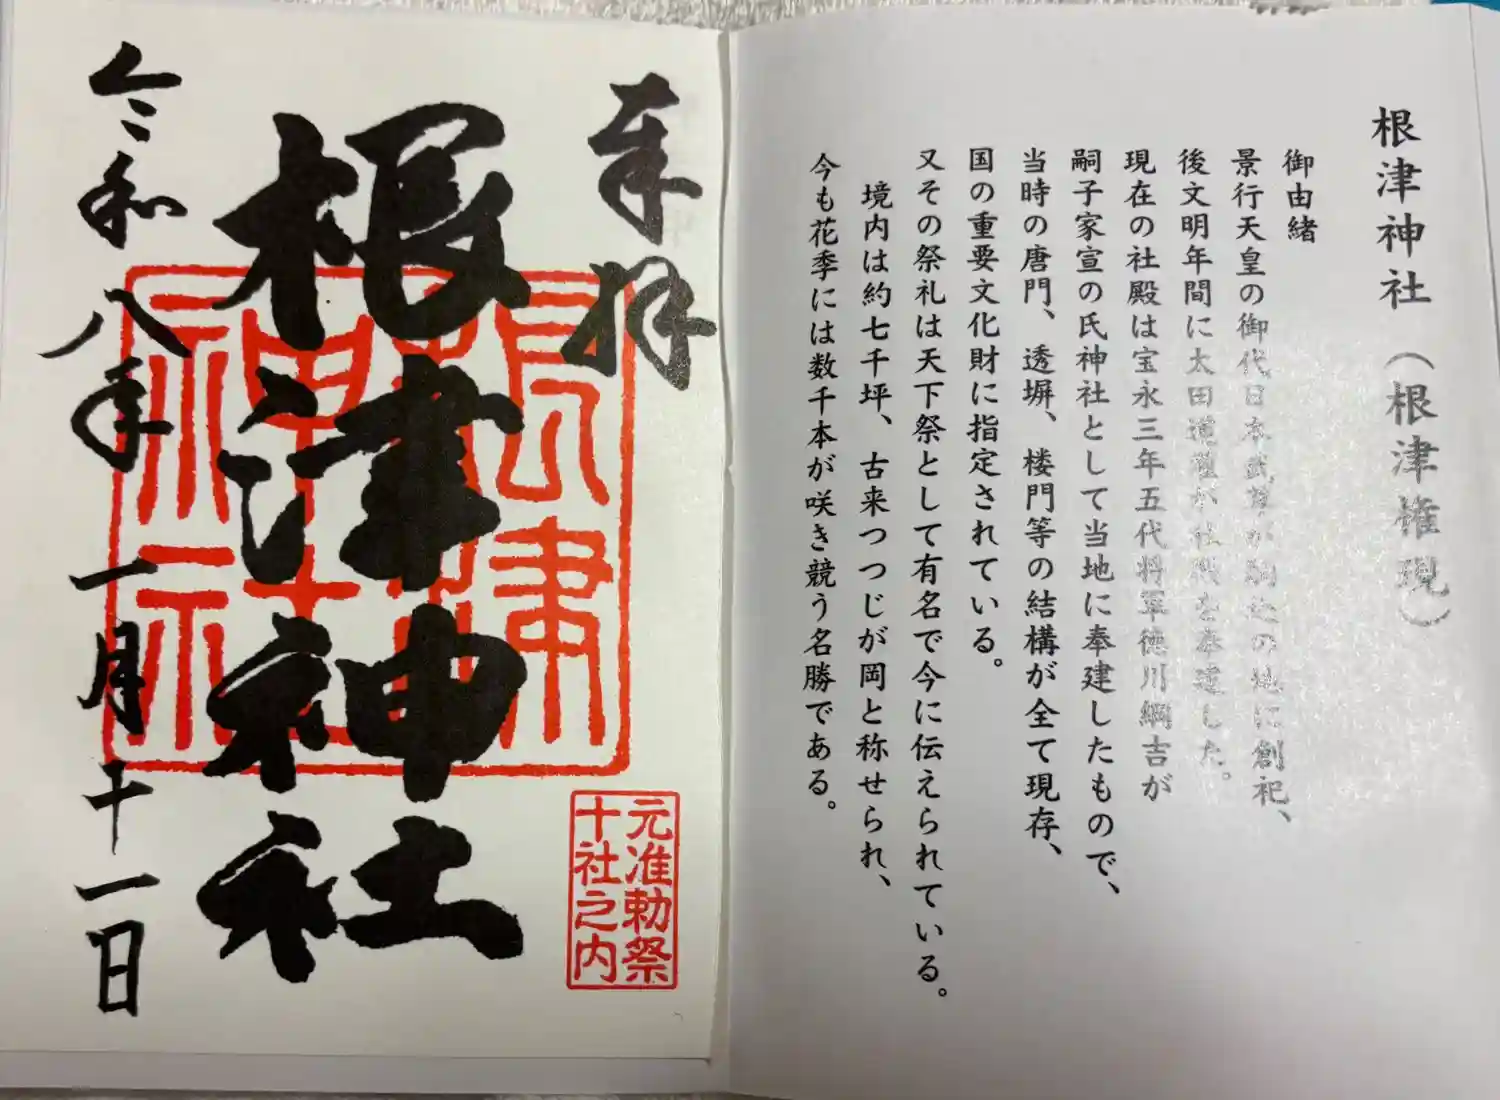 根津神社（根津権現）
御由緒
景行天皇の御代日本武尊が駒込の地に創祀、
後文明年間に太田道灌が社殿を奉建した。
現在の社殿は宝永三年五代将軍徳川綱吉が
嗣子家宣の氏神社として当地に奉建したもので、
当時の唐門、透塀、楼門等の結構が全て現存、
国の重要文化財に指定されている。
又その祭礼は天下祭として有名で今に伝えられている。
境内は約七千坪、古来つつじが岡と称せられ、
今も花季には数千本が咲き競う名勝である。
奉拝
根津神社
根津
神社
元准勅祭
十社之内
令和八年一月十一日